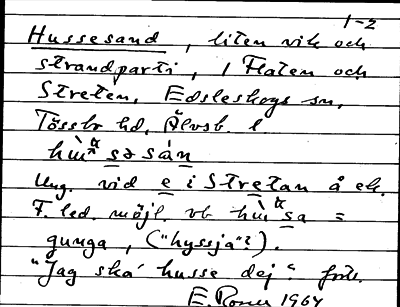 1-2
Hussesand, liten vik och
strandparti, 1 Flaten och
Streten, Edsleskogs sn,
Tössbo hd, Älvsb. l
səsán
Ung. vid e i Stretan å ek.
F. led. möjl. vb
gunga, ("hyssja"?).
"Jag ska husse dej" förr.
E. Rosell 1964